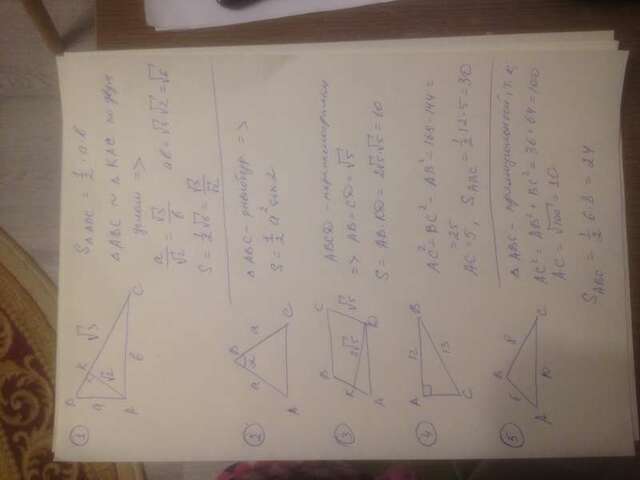 1
B
K
√3
a
√2
A
б
C
S△ABC = 1/2 · a·b
△ABC ~ △KAC по двум
углам =>
a/√2 = √3/b    ab = √3·√2 = √6
S = 1/2 √6 = √3/√2
2
B
a
α
a
A
C
△ABC - равнобедр =>
S = 1/2 a² sin α
3
B
C
K
2√5
√5
A
D
ABCD - параллелограмм
=> AB = CD = √5
S = AB·KD = 2√5·√5 = 10
4
A
12
B
13
C
AC² = BC² - AB² = 169 - 144 =
= 25
AC = 5, S ABC = 1/2 12·5 = 30
5
B
6
8
A
10
C
△ABC - прямоугольный, т.к.
AC² = AB² + BC² = 36 + 64 = 100
AC = √100 = 10
S ABC = 1/2 · 6·8 = 24